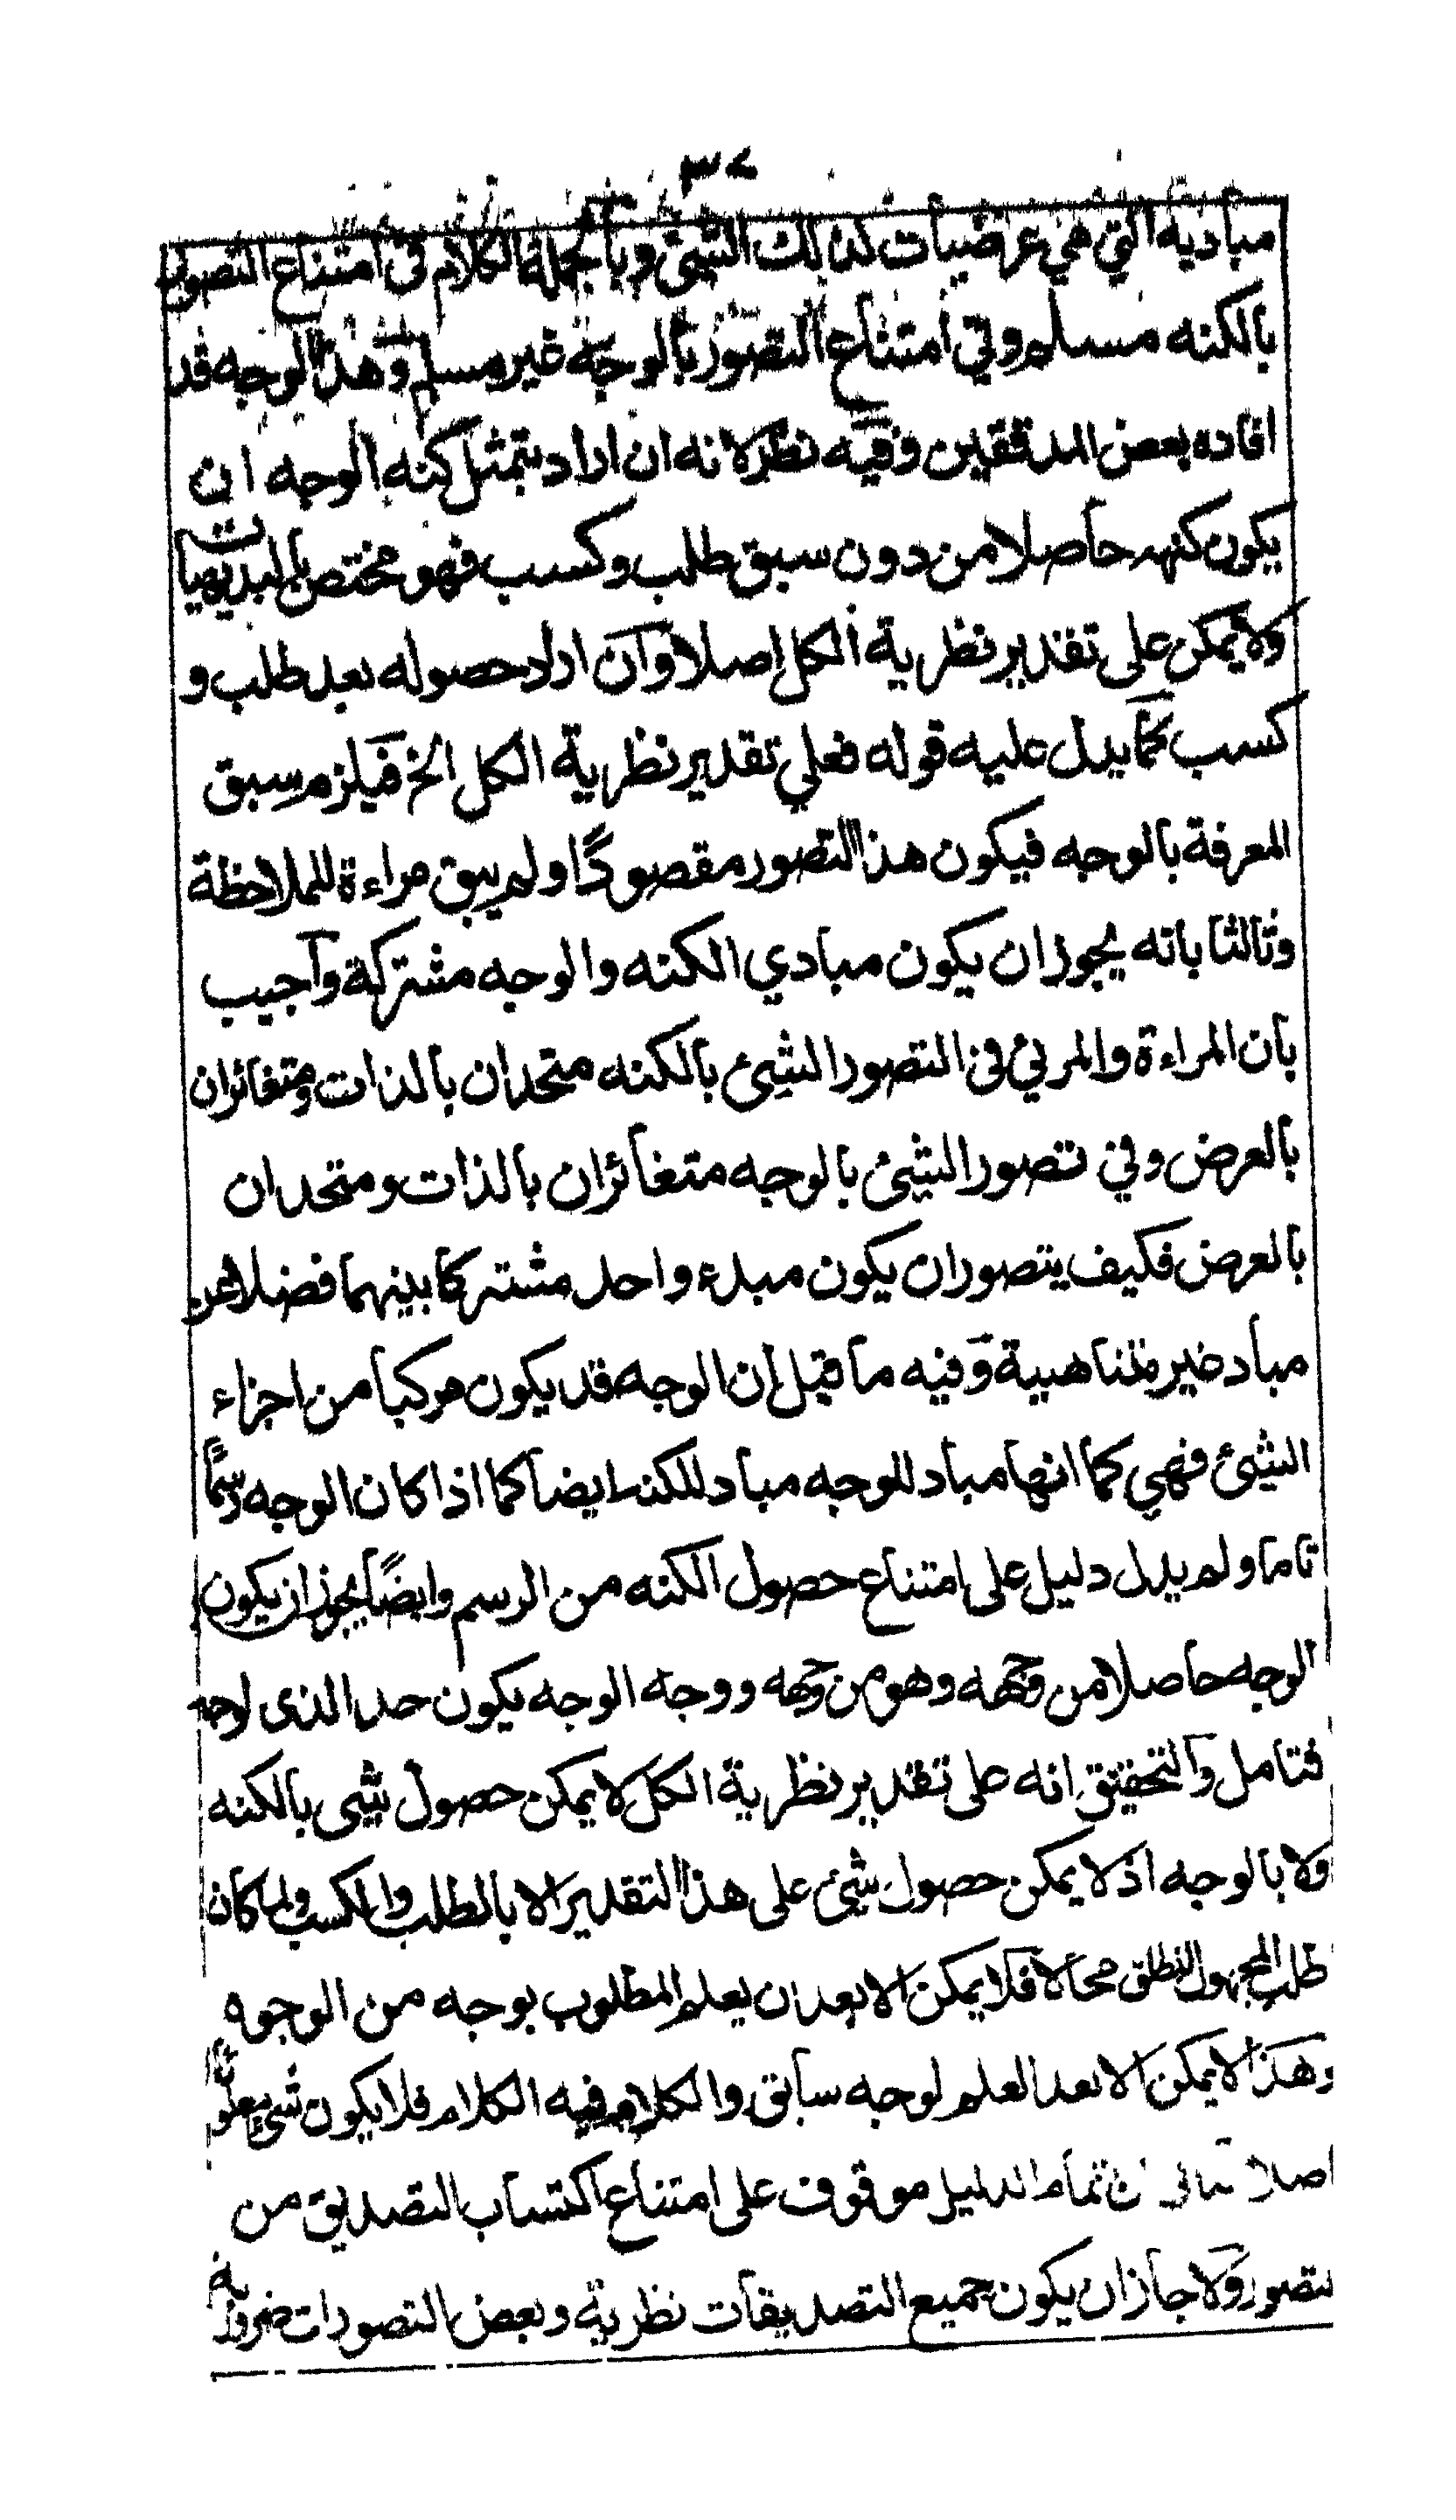 ٣٧
مباديه التي هي عرضيات لذلك الشيئ وبالجملة الكلام في امتناع التصور
بالكنه مسلم وفي امتناع التصور بالوجه غير مسلم وهذا الوجه قد
افاده بعض المدققين وفيه نظر لانه ان اراد بتمثل كنه الوجه ان
يكون كنهه حاصلا من دون سبق طلب وكسب فهو مختص بالبديهيات
ولا يمكن على تقدير نظرية الكل اصلا وان اراد حصوله بعد طلب و
كسب كما يدل عليه قوله فعلي تقدير نظرية الكل الخ فيلزم سبق
المعرفة بالوجه فيكون هذا التصور مقصودًا ولم يبق مراءة للملاحظة
وثالثا بانه يجوز ان يكون مبادي الكنه والوجه مشتركة وآجيب
بان المراءة والمرئي في التصور الشيئ بالكنه متحدان بالذات ومتغائران
بالعرض وفي تصور الشيئ بالوجه متغائران بالذات ومتحدان
بالعرض فكيف يتصور ان يكون مبدء واحد مشتركا بينهما فضلا عن
مباد غير متناهية وفيه ما قيل ان الوجه قد يكون مركبا من اجزاء
الشيئ فهي كما انها مباد للوجه مباد للكنه ايضا كما اذا كان الوجه رسمًا
تاما ولم يدل دليل على امتناع حصول الكنه من الرسم وايضًا يجوز ان يكون
الوجه حاصلا من وجهه وهو من وجهه ووجه الوجه يكون حدا لذى الوجه
فتامل والتحقيق انه على تقدير نظرية الكل لا يمكن حصول شيى بالكنه
ولا بالوجه اذ لا يمكن حصول شيئ على هذا التقدير الا بالطلب والكسب ولما كان
طلب المجهول المطلق محالا فلا يمكن الا بعد ان يعلم المطلوب بوجه من الوجوه
وهذا لا يمكن الا بعد العلم لوجه سابق والكلام فيه الكلام فلا يكون شيئ معلومًا
اصلا تمام الدليل موقوف على امتناع اكتساب التصديق من
لتصور ولا جاز ان يكون جميع التصديقات نظرية وبعض التصورات ضرورية